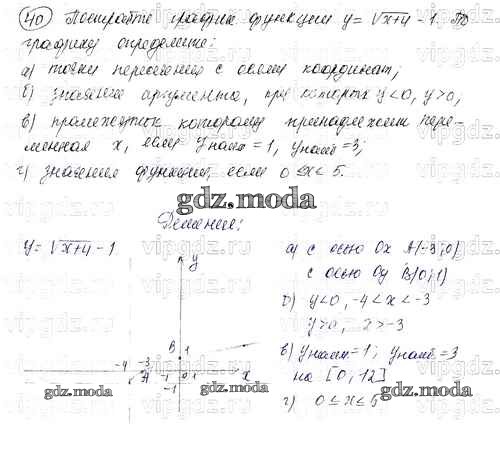 40 Постройте график функции y = √x+4 - 1. По
графику определите:
а) точки пересечения с осями координат;
б) значения аргумента, при которых y<0, y>0;
в) промежуток которому принадлежит пере-
менная x, если yнаим = 1, yнаиб = 3;
г) значения функции, если 0≤x≤5.
gdz.moda
Решение:
y = √x+4 - 1
y
а) с осью Ox A(-3;0)
с осью Oy B(0;1)
б) y<0, -4<x<-3
y>0, x>-3
B 1
в) yнаим = 1; yнаиб = 3
на [0, 12]
-4 -3 A -1 0 1 x
-1
г) 0≤x≤5
gdz.moda
gdz.moda
vipgdz